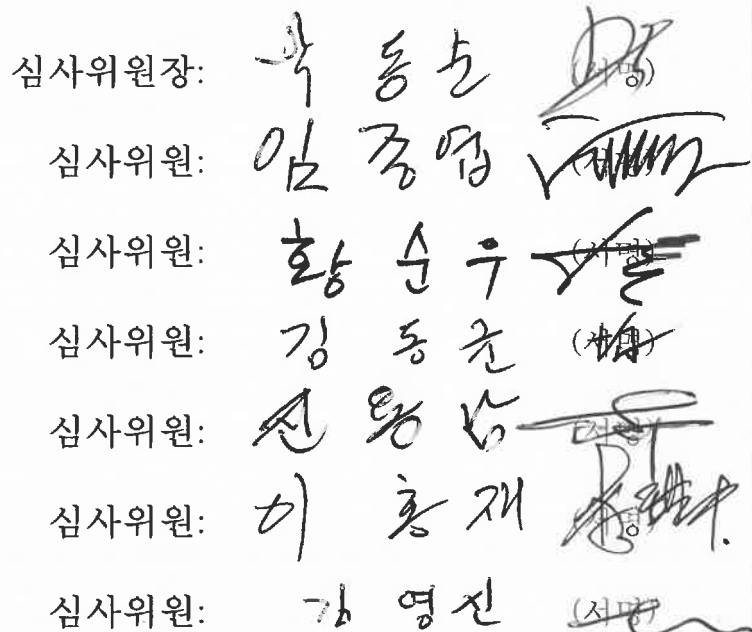 심사위원장: 박 동 순 (서명)
심사위원: 임 종 엽 (서명)
심사위원: 황 순 우 (서명)
심사위원: 김 동 근 (서명)
심사위원: 신 용 남 (서명)
심사위원: 이 홍 재 (서명)
심사위원: 김 영 신 (서명)